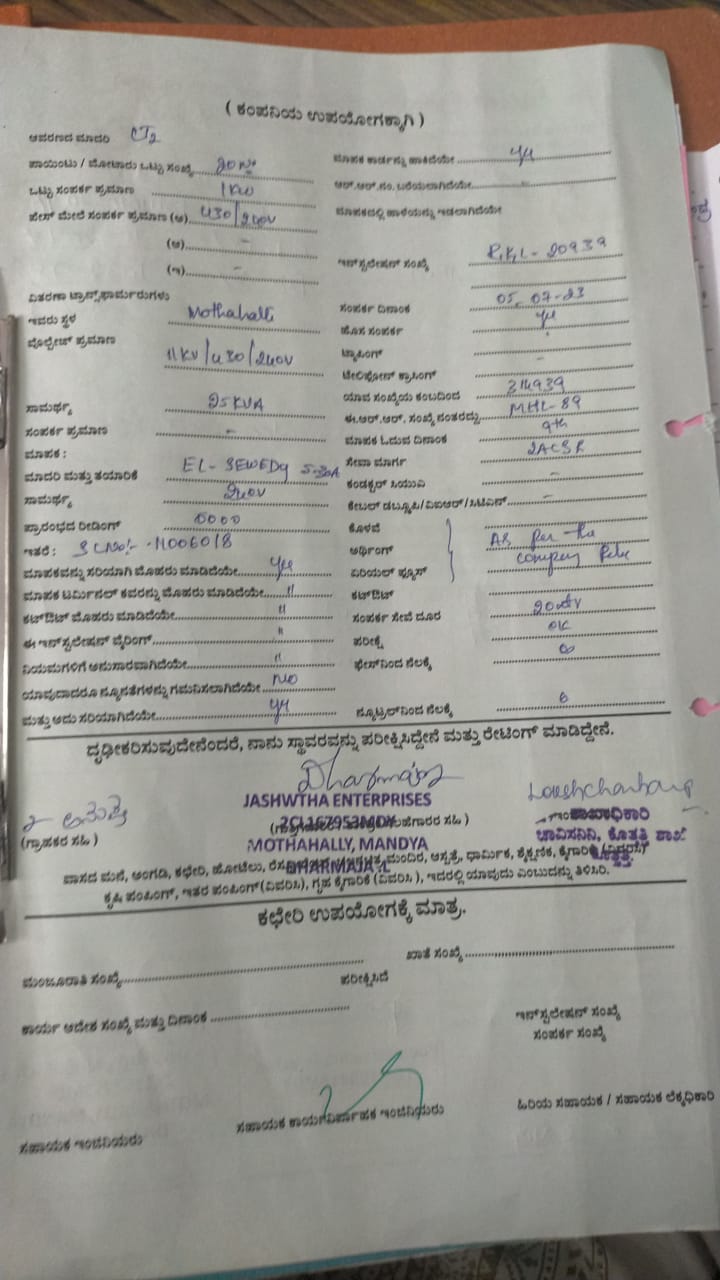 ( ಕಂಪನಿಯ ಉಪಯೋಗಕ್ಕಾಗಿ )
ಆವರಣದ ಮಾದರಿ CT2
ಪಾಯಿಂಟು / ಮೋಟಾರು ಒಟ್ಟು ಸಂಖ್ಯೆ
ಮಾಪಕ ಕಾರ್ಡನ್ನು ಹಾಕಿದೆಯೇ
ಒಟ್ಟು ಸಂಪರ್ಕ ಪ್ರಮಾಣ 1KW
ಆರ್.ಆರ್.ಸಂ. ಬರೆಯಲಾಗಿದೆಯೇ -
ಫೇಸ್ ಮೇಲೆ ಸಂಪರ್ಕ ಪ್ರಮಾಣ (ಅ) 430/240V
ಮಾಪಕದಲ್ಲಿ ಹಾಳೆಯನ್ನು ಇಡಲಾಗಿದೆಯೇ
(ಆ) -
(ಇ) -
ಇನ್‌ಸ್ಟಲೇಷನ್ ಸಂಖ್ಯೆ 20939
ವಿತರಣಾ ಟ್ರಾನ್ಸ್‌ಫಾರ್ಮರುಗಳು
ಸಂಪರ್ಕ ದಿನಾಂಕ 05-07-23
ಇದರು ಸ್ಥಳ Mothahalli
ಹೊಸ ಸಂಪರ್ಕ
ವೋಲ್ಟೇಜ್ ಪ್ರಮಾಣ 11KV/430/240V
ಟ್ಯಾಪಿಂಗ್ -
ಟೆಲಿಫೋನ್ ಕ್ರಾಸಿಂಗ್ -
ಸಾಮರ್ಥ್ಯ 25KVA
ಯಾವ ಸಂಖ್ಯೆಯ ಕಂಬದಿಂದ 214939
ಸಂಪರ್ಕ ಪ್ರಮಾಣ -
ಈ.ಆರ್.ಆರ್. ಸಂಖ್ಯೆ ನಂತರದ್ದು MHL-89
ಮಾಪಕ :
ಮಾಪಕ ಓದುವ ದಿನಾಂಕ 9th
ಮಾದರಿ ಮತ್ತು ತಯಾರಿಕೆ EL- SEWEDY 5-30A
ಸೇವಾ ಮಾರ್ಗ 2ACSR
ಸಾಮರ್ಥ್ಯ 240V
ಕಂಡಕ್ಟರ್ ಸಿಯುವಿ -
ಪ್ರಾರಂಭದ ರೀಡಿಂಗ್ 0000
ಕೇಬಲ್ ಡಬ್ಲ್ಯೂಪಿ/ವಿಐಆರ್/ಸಿಟಿಎಸ್ -
ಇತರೆ : SLNO:- 11006018
ಕೊಳವೆ
ಅರ್ಥಿಂಗ್ As per the
ಏರಿಯಲ್ ಫ್ಯೂಸ್ company Rule
ಮಾಪಕವನ್ನು ಸರಿಯಾಗಿ ಮೊಹರು ಮಾಡಿದೆಯೇ yes
ಮಾಪಕ ಟರ್ಮಿನಲ್ ಕವರನ್ನು ಮೊಹರು ಮಾಡಿದೆಯೇ "
ಕಟ್‌ಔಟ್
ಕಟ್‌ಔಟ್ ಮೊಹರು ಮಾಡಿದೆಯೇ "
ಸಂಪರ್ಕ ಸೇವೆ ದೂರ
ಈ ಇನ್‌ಸ್ಟಲೇಷನ್ ವೈರಿಂಗ್ "
ಪರೀಕ್ಷೆ OK
ನಿಯಮಗಳಿಗೆ ಅನುಸಾರವಾಗಿದೆಯೇ "
ಫೇಸ್‌ನಿಂದ ನೆಲಕ್ಕೆ
ಯಾವುದಾದರೂ ನ್ಯೂನತೆಗಳನ್ನು ಗಮನಿಸಲಾಗಿದೆಯೇ No
ಮತ್ತು ಅದು ಸರಿಯಾಗಿದೆಯೇ yes
ನ್ಯೂಟ್ರಲ್‌ನಿಂದ ನೆಲಕ್ಕೆ
ದೃಢೀಕರಿಸುವುದೇನೆಂದರೆ, ನಾನು ಸ್ಥಾವರವನ್ನು ಪರೀಕ್ಷಿಸಿದ್ದೇನೆ ಮತ್ತು ರೇಟಿಂಗ್ ಮಾಡಿದ್ದೇನೆ.
JASHWTHA ENTERPRISES
2CL167953MDY
(ಗ್ರಾಹಕರ ಸಹಿ )
ಶಾಖಾಧಿಕಾರಿ
MOTHAHALLY, MANDYA
ಚಾವಿಸನಿನಿ, ಕೊತ್ತತ್ತಿ ಶಾಖೆ
DHARMAJA .L
ಕೊತ್ತತ್ತಿ
ವಾಸದ ಮನೆ, ಅಂಗಡಿ, ಕಛೇರಿ, ಹೋಟೆಲು, ಮಂದಿರ, ಆಸ್ಪತ್ರೆ, ಧಾರ್ಮಿಕ, ಶೈಕ್ಷಣಿಕ, ಕೈಗಾರಿಕೆ (ವಿವರಿಸಿ)
ಕೃಷಿ ಪಂಪಿಂಗ್, ಇತರೆ ಪಂಪಿಂಗ್(ವಿವರಿಸಿ), ಗೃಹ ಕೈಗಾರಿಕೆ (ವಿವರಿಸಿ ), ಇದರಲ್ಲಿ ಯಾವುದು ಎಂಬುದನ್ನು ತಿಳಿಸಿರಿ.
ಕಛೇರಿ ಉಪಯೋಗಕ್ಕೆ ಮಾತ್ರ.
ಮಂಜೂರಾತಿ ಸಂಖ್ಯೆ
ಖಾತೆ ಸಂಖ್ಯೆ
ಪರೀಕ್ಷಿಸಿದೆ
ಕಾರ್ಯ ಆದೇಶ ಸಂಖ್ಯೆ ಮತ್ತು ದಿನಾಂಕ
ಇನ್‌ಸ್ಟಲೇಷನ್ ಸಂಖ್ಯೆ
ಸಂಪರ್ಕ ಸಂಖ್ಯೆ
ಸಹಾಯಕ ಇಂಜಿನಿಯರು
ಸಹಾಯಕ ಕಾರ್ಯನಿರ್ವಾಹಕ ಇಂಜಿನಿಯರು
ಹಿರಿಯ ಸಹಾಯಕ / ಸಹಾಯಕ ಲೆಕ್ಕಾಧಿಕಾರಿ